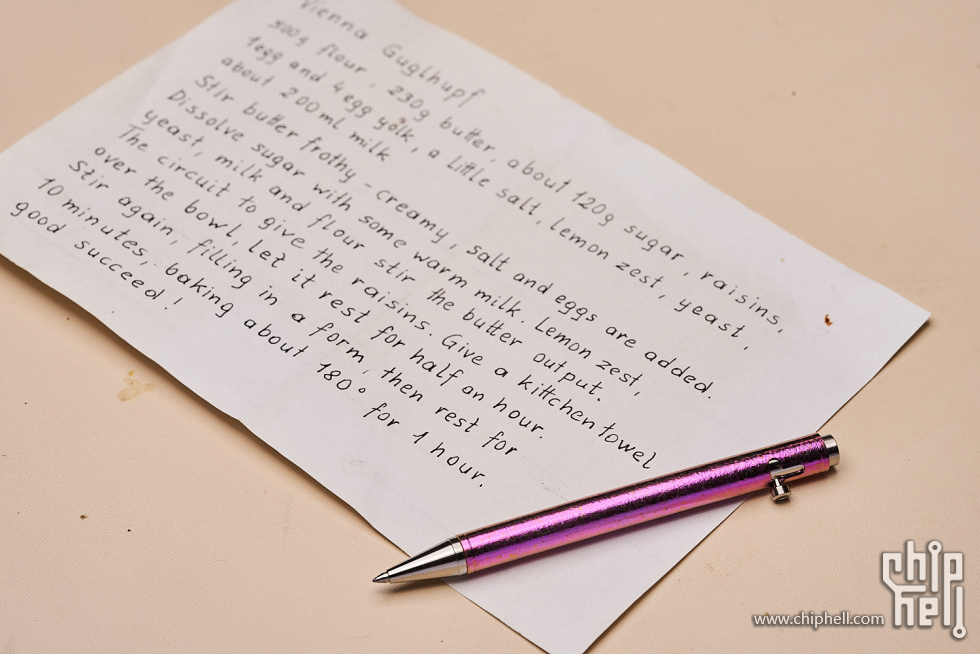 Vienna Guglhupf
500g flour, 230g butter, about 120g sugar, raisins,
1egg and 4 egg yolk, a little salt, lemon zest, yeast,
about 200ml milk
Stir butter frothy-creamy, salt and eggs are added.
Dissolve sugar with some warm milk. Lemon zest,
yeast, milk and flour stir the butter output.
The circuit to give the raisins. Give a kittchentowel
over the bowl, let it rest for half an hour.
Stir again, filling in a form, then rest for
10 minutes, baking about 180° for 1 hour.
good succeed!
www.chiphell.com
chip
hell